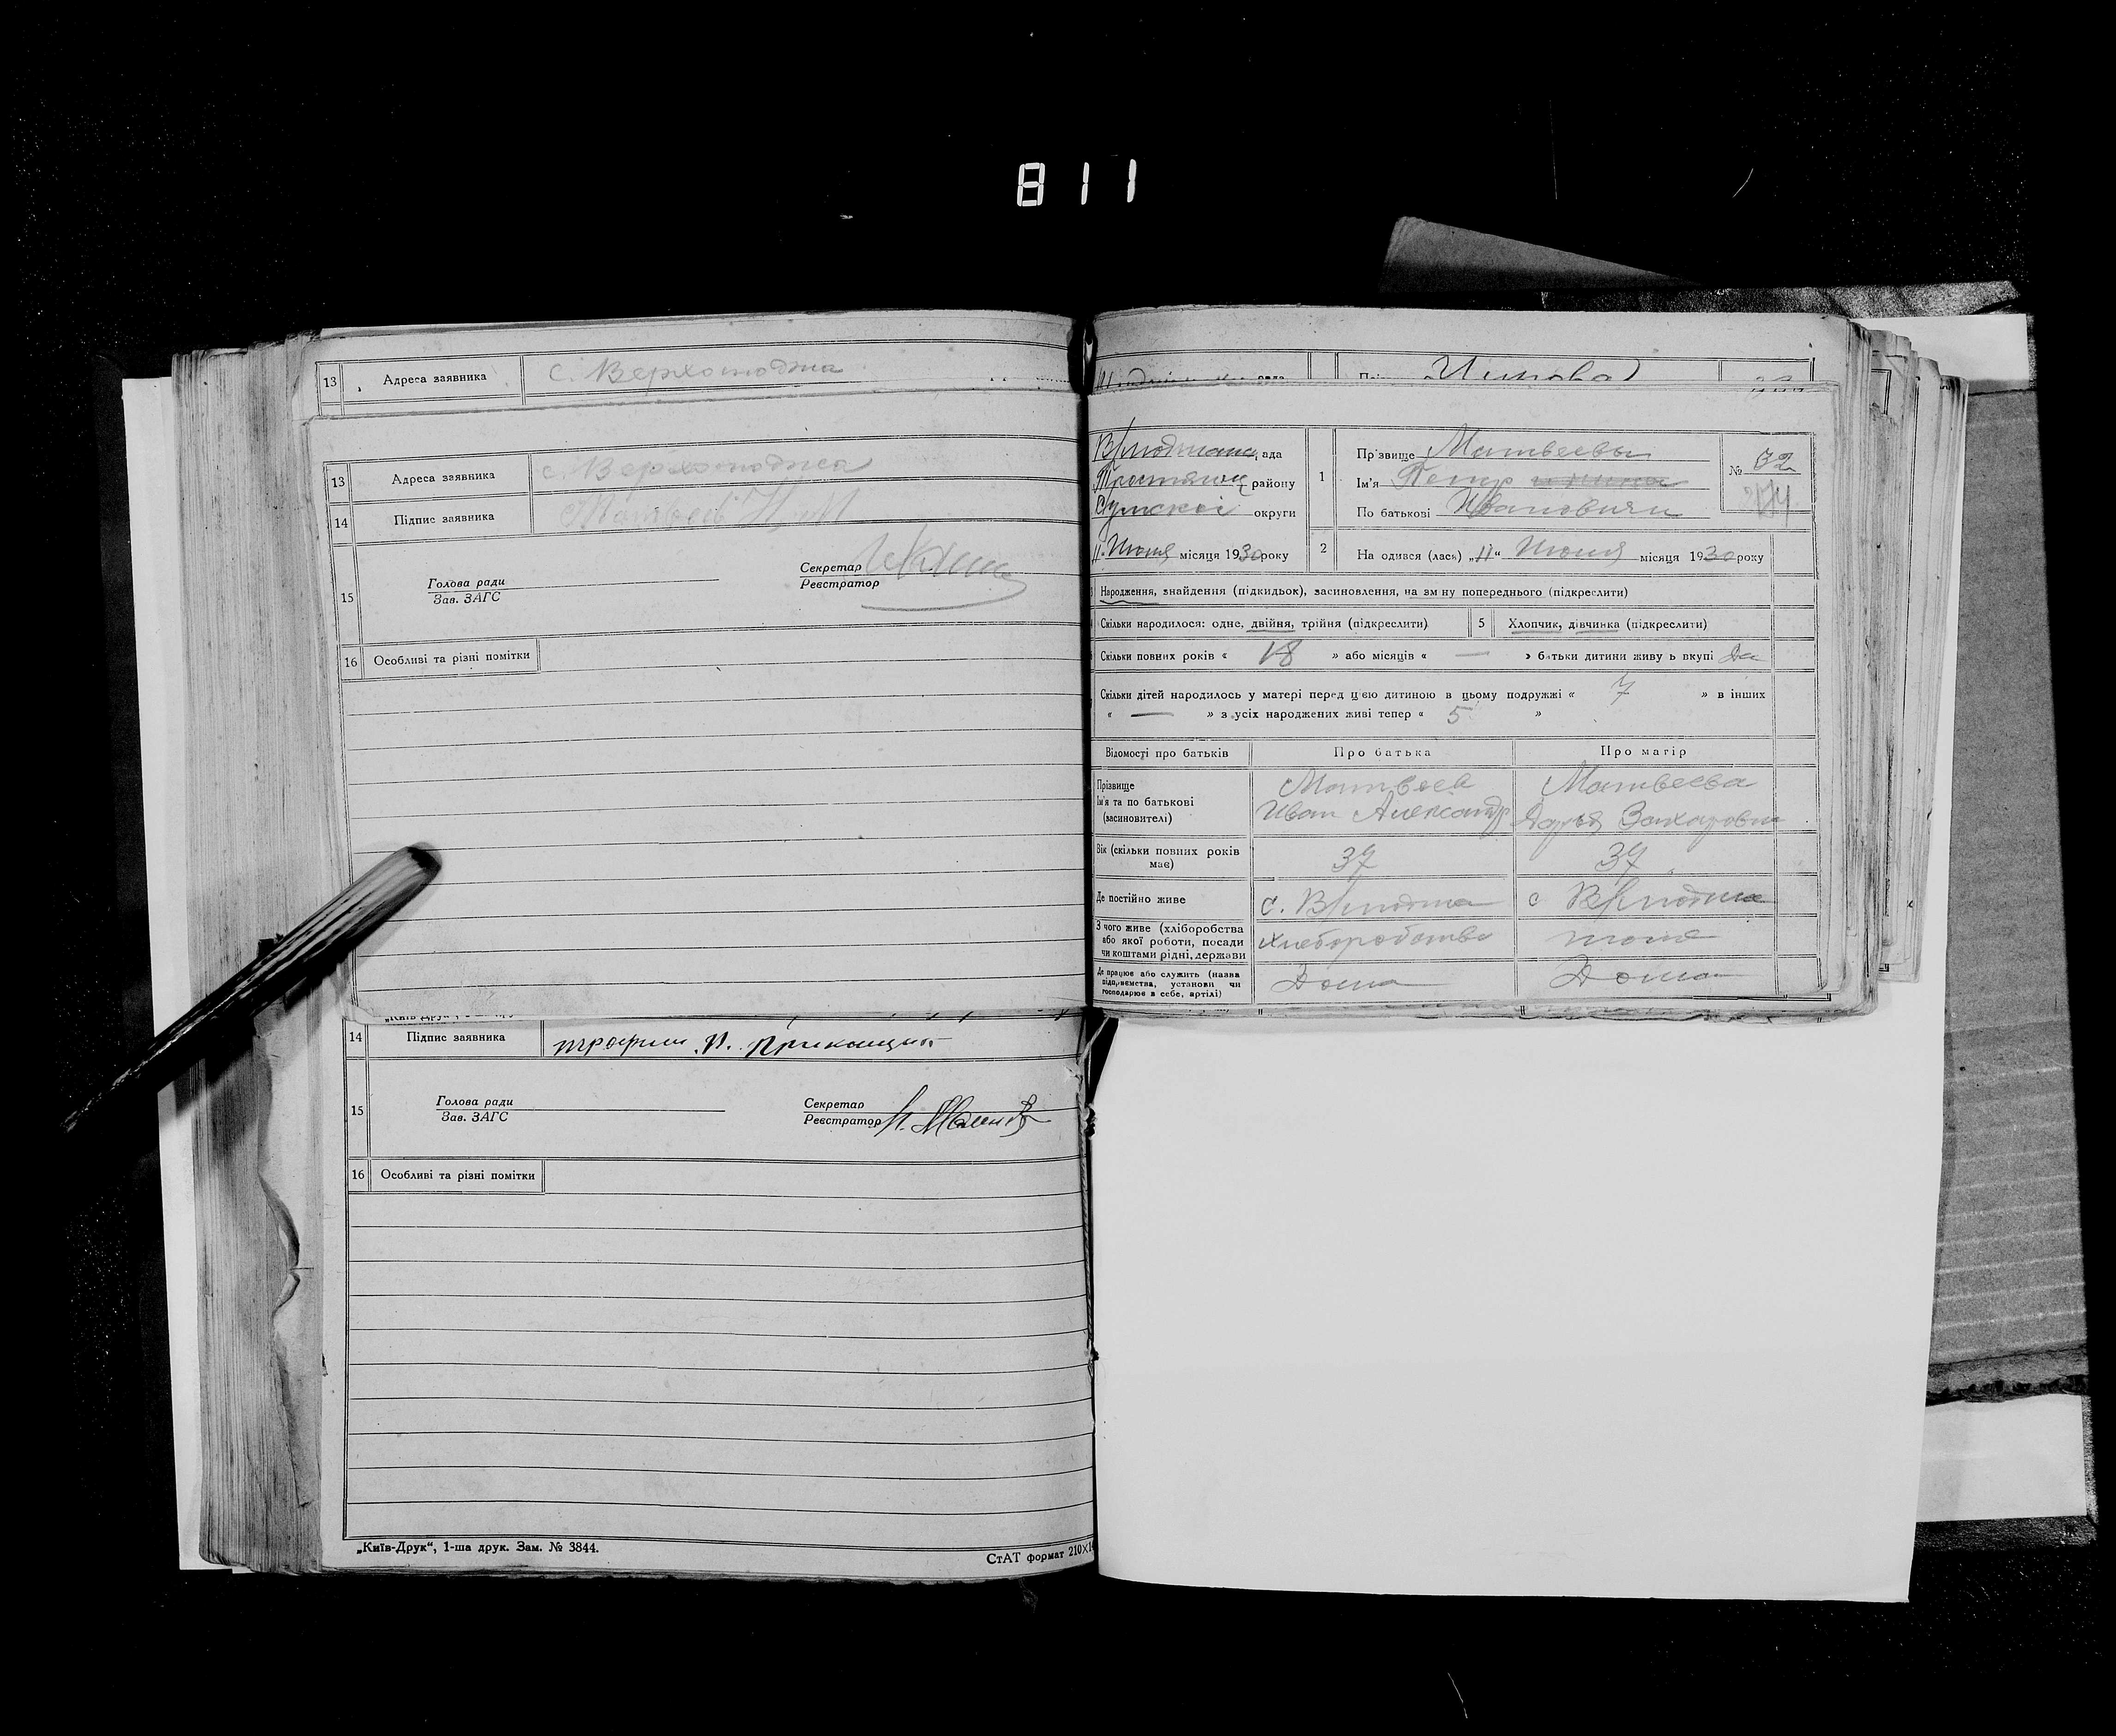 811
13 Адреса заявника с. Верхолюджа
13 Адреса заявника с. Верхолюджа
14 Підпис заявника Матвеев
15 Голова ради Секретар
Зав. ЗАГС Реєстратор
16 Особливі та різні помітки
14 Підпис заявника
15 Голова ради Секретар
Зав. ЗАГС Реєстратор
16 Особливі та різні помітки
„Київ-Друк“, 1-ша друк. Зам. № 3844.
СтАТ формат 210×1
ада
Тростянец району
Сумскоі округи
11 Июня місяця 1930 року
1 Прізвище Матвеевы
Ім'я Петр
По батькові Ивановичи
№ 32
2 На одився (лась) „11“ Июня місяця 1930 року
Народження, знайдення (підкидьок), засиновлення, на зміну попереднього (підкреслити)
Скільки народилося: одне, двійня, трійня (підкреслити) 5 Хлопчик, дівчинка (підкреслити)
Скільки повних років « 18 » або місяців « — » батьки дитини живу ь вкупі Да
Скільки дітей народилось у матері перед цією дитиною в цьому подружжі « 7 » в інших
« — » з усіх народжених живі тепер « 5 »
Відомості про батьків Про батька Про матір
Прізвище Матвеев Матвеева
Ім'я та по батькові Иван Александр Дарья Захаровна
(засиновителі)
Вік (скільки повних років має) 37 37
Де постійно живе с. с
З чого живе (хліборобства або якої роботи, посади чи коштами рідні, держави Хлеборобство тоже
Де працює або служить (назва підприємства, установи чи господарює в себе, артілі) Дома Дома